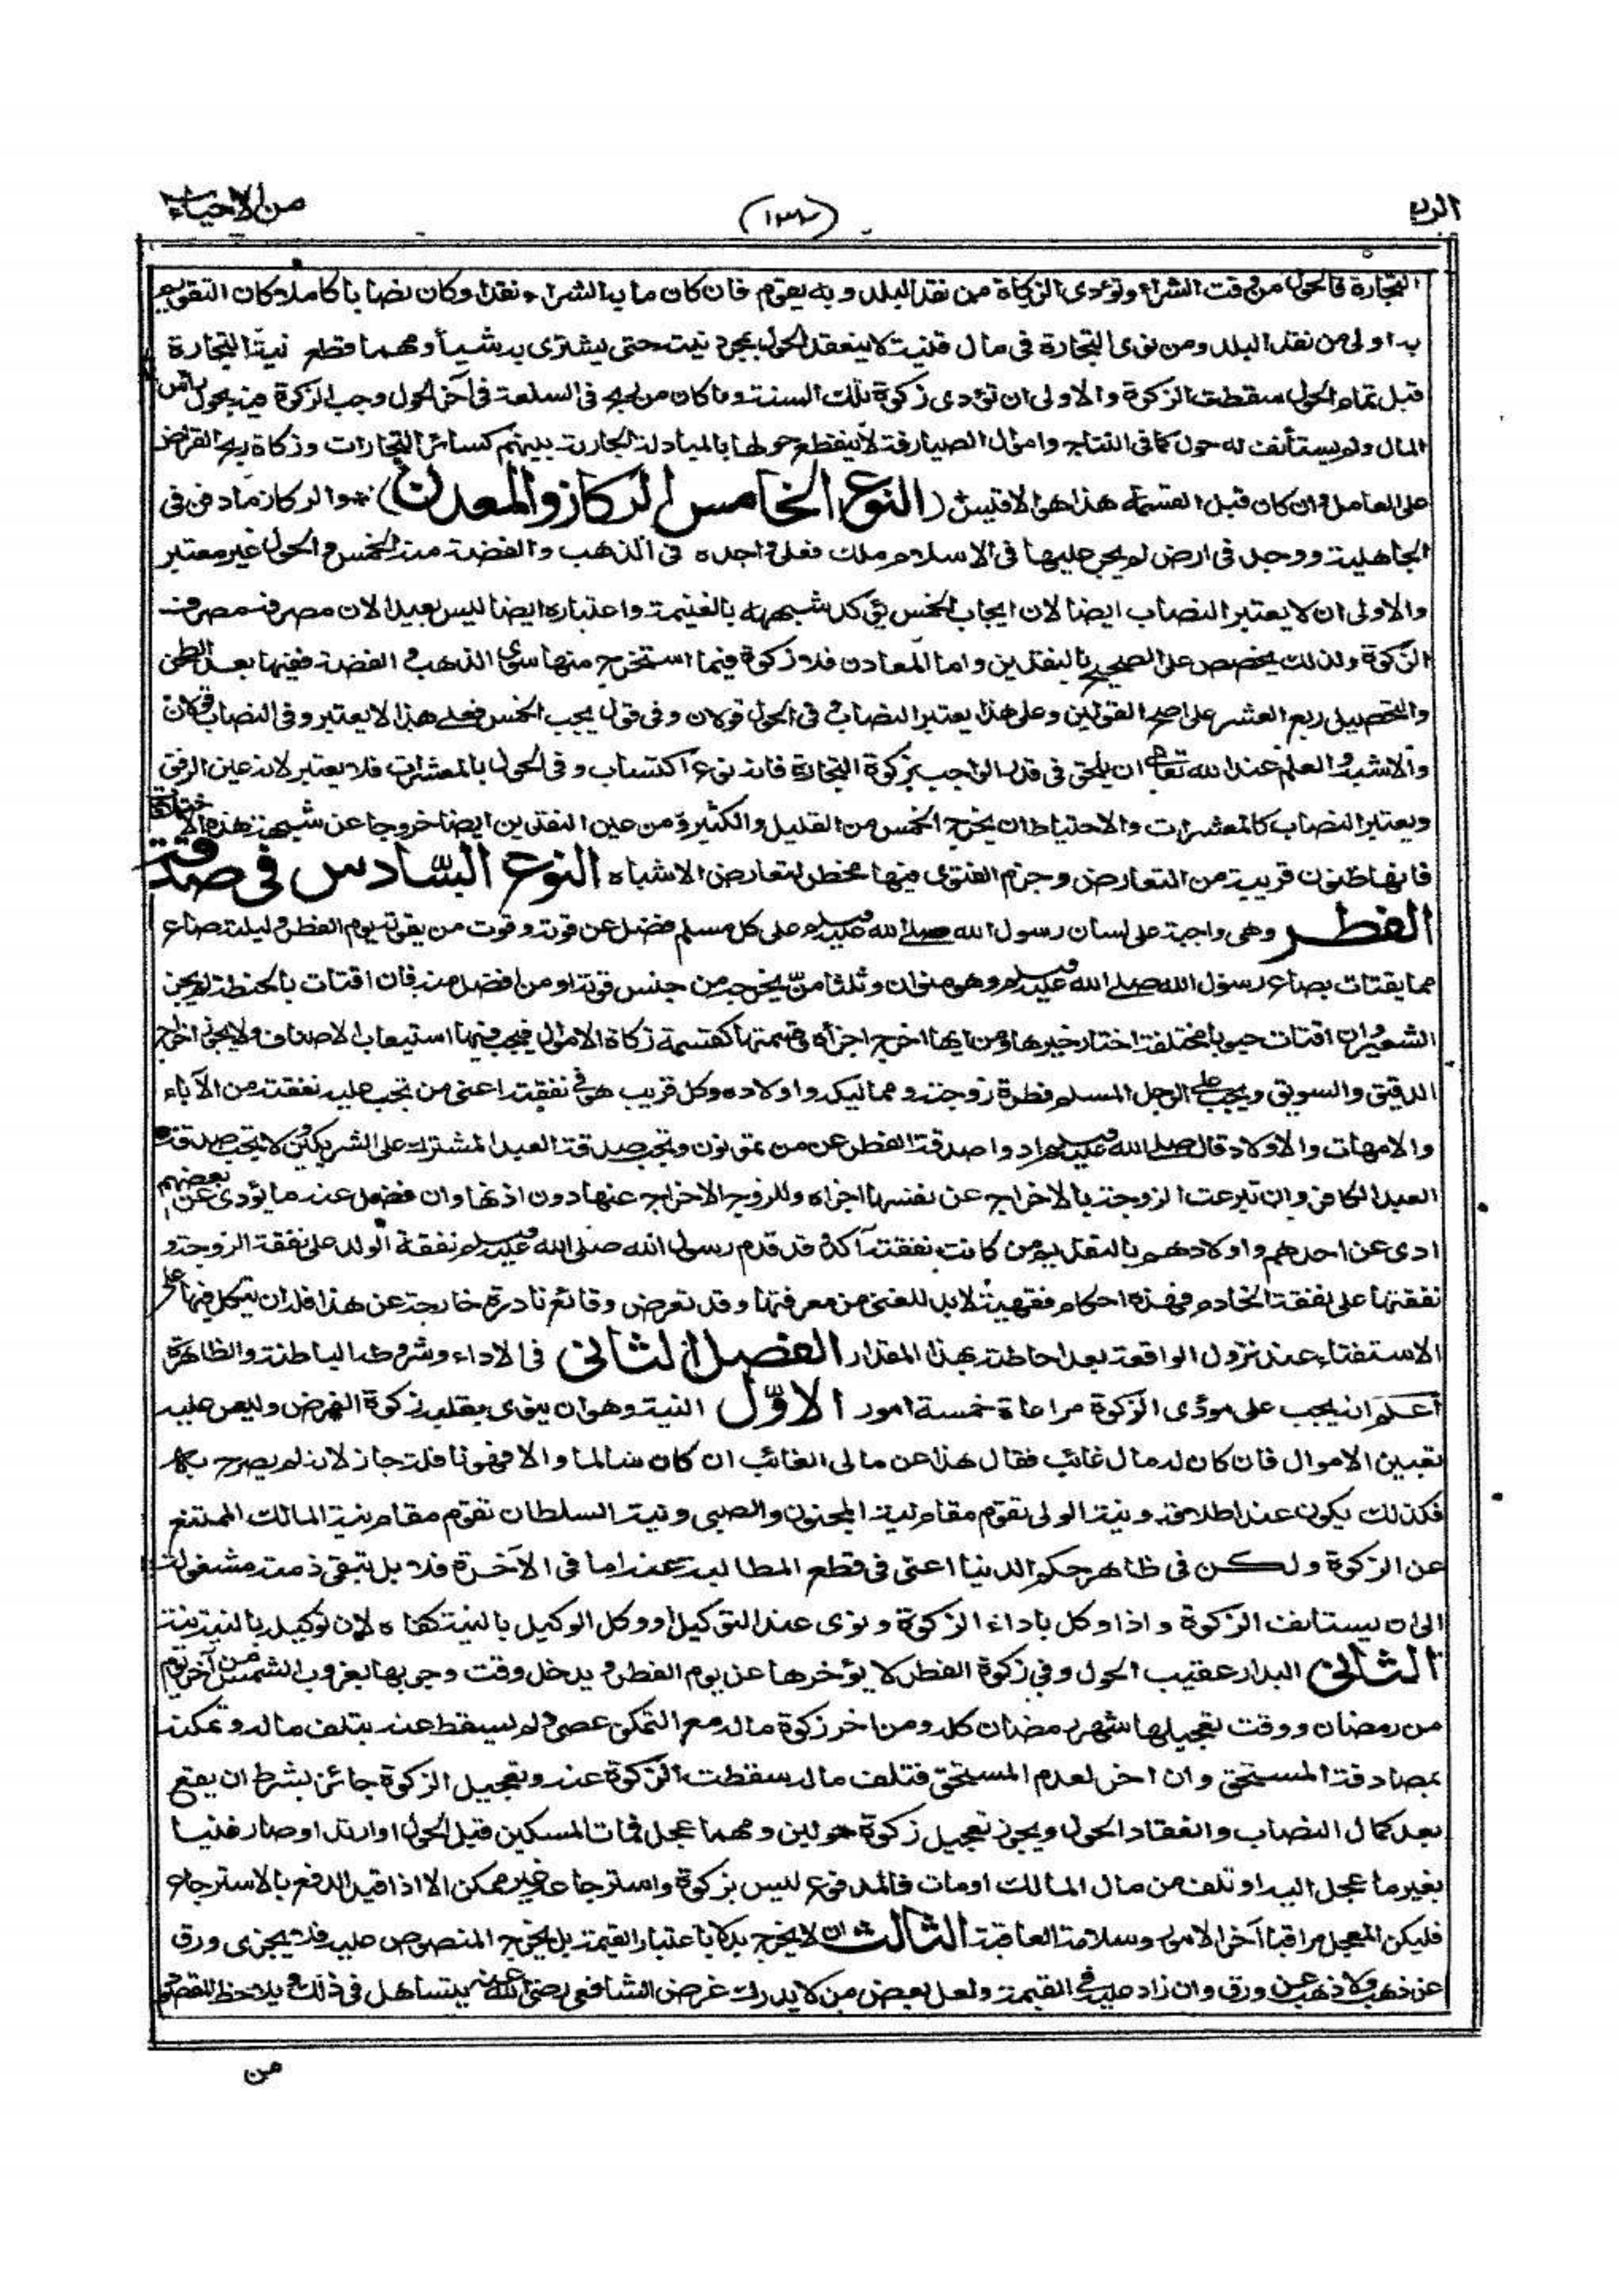 الربع
(١٣٢)
من الاحياء
التجارة فالحول من وقت الشراء وتؤدى الزكاة من نقد البلد وبه يقوم فان كان ما به الشراء نقدا وكان نصابا كاملا كان التقويم
به اولى من نقد البلد ومن نوى التجارة فى مال قنيته لا ينعقد الحول بمجرد نيته حتى يشترى به شيأ ومهما قطع نية التجارة
قبل تمام الحول سقطت الزكوة والاولى ان تؤدى زكوة تلك السنة وما كان من ربح فى السلعة فى آخر الحول وجب الزكوة فيه بحول راس
المال ولم يستأنف له حول كما فى النتاج واموال الصيارفة لا ينقطع حولها بالمبادلة الجارية بينهم كسائر التجارات وزكاة ربح القراض
على العامل وان كان قبل القسمة هذا هو الاقيس (النوع الخامس الركاز والمعدن) والركاز ما دفن فى
الجاهلية ووجد فى ارض لم يجر عليها فى الاسلام ملك فعلى واجده فى الذهب والفضة منه الخمس والحول غير معتبر
والاولى ان لا يعتبر النصاب ايضا لان ايجاب الخمس يؤكد شبهه بالغنيمة واعتباره ايضا ليس ببعيد لان مصرفه مصرف
الزكوة ولذلك يخصص على الصحيح بالنقدين واما المعادن فلا زكوة فيما استخرج منها سوى الذهب والفضة ففيها بعد الطحن
والتحصيل ربع العشر على اصح القولين وعلى هذا يعتبر النصاب وفى الحول قولان وفى قول يجب الخمس فعلى هذا لا يعتبر وفى النصاب قولان
والاشبه والعلم عند الله تعالى ان يلحق فى قدر الواجب بزكوة التجارة فانه نوع اكتساب وفى الحول بالمعشرات فلا يعتبر لانه عين الرفق
ويعتبر النصاب كالمعشرات والاحتياط ان يخرج الخمس من القليل والكثير ومن عين النقدين ايضا خروجا عن شبهة هذه الاختلافات
فانها ظنون قريبة من التعارض وجزم الفتوى فيها مخطر لتعارض الاشباه النوع السّادس فى صدقة
الفطر وهى واجبة على لسان رسول الله صلى الله عليه وسلم على كل مسلم فضل عن قوته وقوت من يقوته يوم الفطر وليلته صاع
مما يقتات بصاع رسول الله صلى الله عليه وسلم وهو منوان وثلثا منّ يخرجه من جنس قوته او من افضل منه فان اقتات بالحنطة لم يجز
الشعير وان اقتات حبوبا مختلفة اختار خيرها ومن ايها اخرج اجزأه وقسمتها كقسمة زكاة الاموال فيجب فيها استيعاب الاصناف ولا يجوز اخراج
الدقيق والسويق ويجب على الرجل المسلم فطرة زوجته ومماليكه واولاده وكل قريب هو فى نفقته اعنى من تجب عليه نفقته من الآباء
والامهات والاولاد قال صلى الله عليه وسلم ادوا صدقة الفطر عن من تمونون وتجب صدقة العبد المشترك على الشريكين ولا تجب صدقة
العبد الكافر وان تبرعت الزوجة بالاخراج عن نفسها اجزاه وللزوج الاخراج عنها دون اذنها وان فضل عنه ما يؤدى عن بعضهم
ادى عن احدهم واولادهم بالتقديم من كانت نفقته آكد وقد قدم رسول الله صلى الله عليه وسلم نفقة الولد على نفقة الزوجة و
نفقتها على نفقة الخادم فهذه احكام فقهية لا بد للغنى من معرفتها وقد تعرض وقائع نادرة خارجة عن هذا فله ان يتكل فيها على
الاستفتاء عند نزول الواقعة بعد احاطته بهذا المقدار الفصل الثانى فى الاداء وشروطه الباطنة والظاهرة
أعلم انه يجب على مؤدى الزكوة مراعاة خمسة امور الاوّل النية وهو ان ينوى بقلبه زكوة الفرض وليس عليه
تعيين الاموال فان كان له مال غائب فقال هذا عن مالى الغائب ان كان سالما والا فهو نافلة جاز لانه لو لم يصرح به
فكذلك يكون عند اطلاقه ونية الولى تقوم مقام نية المجنون والصبى ونية السلطان تقوم مقام نية المالك الممتنع
عن الزكوة ولكن فى ظاهر حكم الدنيا اعنى فى قطع المطالبة عنه اما فى الآخرة فلا بل تبقى ذمته مشغولة
الى ان يستانف الزكوة واذا وكل باداء الزكوة ونوى عند التوكيل او وكل الوكيل بالنية كفاه لان توكيله بالنية نية
الثانى البدار عقيب الحول وفى زكوة الفطر لا يؤخرها عن يوم الفطر ويدخل وقت وجوبها بغروب الشمس من آخر يوم
من رمضان ووقت تعجيلها شهر رمضان كله ومن اخر زكوة ماله مع التمكن عصى ولم يسقط عنه بتلف ماله وتمكنه
بمصادفة المستحق وان اخر لعدم المستحق فتلف ماله سقطت الزكوة عنه وتعجيل الزكوة جائز بشرط ان يقع
بعد كمال النصاب وانعقاد الحول ويجوز تعجيل زكوة حولين ومهما عجل فمات المسكين قبل الحول او ارتد او صار غنيا
بغير ما عجل اليه او تلف من مال المالك اومات فالمدفوع ليس بزكوة واسترجاعه غير ممكن الا اذا قيد الدفع بالاسترجاع
فليكن المعجل مراقبا آخر الامور وسلامة العاقبة الثالث ان لا يخرج بدلا باعتبار القيمة بل يخرج المنصوص عليه فلا يجزى ورق
عن ذهب ولا ذهب عن ورق وان زاد عليه فى القيمة ولعل بعض من لا يدرك غرض الشافعى رضى الله عنه يتساهل فى ذلك ويلاحظ المقصود
من